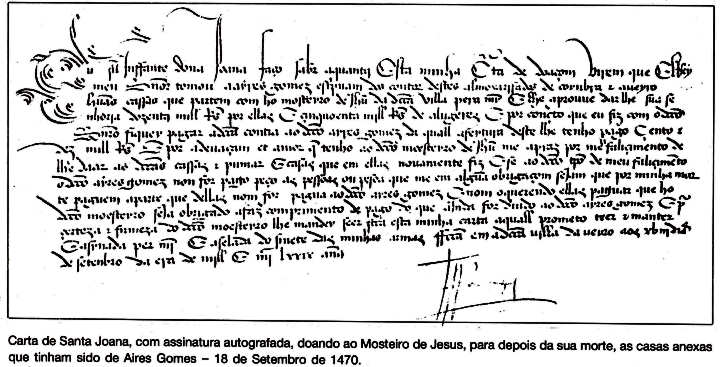 Eu Iffante dona Joana faço saber aquantos Esta minha Carta de doaçom virem que ElRey
meu Snor tomou aayres gomez espriuam do contar destes almoxarifados de coimbra e aueyro
huas cassas que partem com ho mosteiro de Jhu da dicta villa pera mim E lhe aprouue dar lhe sua se
nhoria dozentos mill Rs por ellas E cinquoenta mill Rs de alugeres E por conçerto que eu fiz com o dicto
Snor fiquey pagar adicta contia ao dicto ayres gomez da quall afeitura deste lhe tenho pago Cento e
mill Rs E por a deuaçam et amor que tenho ao dicto mosteiro de Jhu me apraz por meu falicimento de
lhe daar as dictas cassas e pumar E casas que em ellas nouamente fiz E se ao dicto tpo de meu falicimeto
o dicto ayres gomez non for pago peço as pessoas que me em algua obrigaçom sejam que por minha mor
te paguem aparte que dellas nom for pagua ao dicto ayres gomez E nom o querendo ellas paguar que ho
dicto moesteiro seja obrigado afaz comprimento de pago do que ainda for diuido ao dicto ayres gomez E por
çerteza e firmeza do dicto moesteiro lhe mandey seer feita esta minha carta aquall prometo teer e manter
E asinada per mim E aselada do sinete das minhas armas ffeita em a dicta villa da ueiro aos xbiij dias
de setenbro da era de mill E iiij lxxix anos
Carta de Santa Joana, com assinatura autografada, doando ao Mosteiro de Jesus, para depois da sua morte, as casas anexas
que tinham sido de Aires Gomes – 18 de Setembro de 1470.